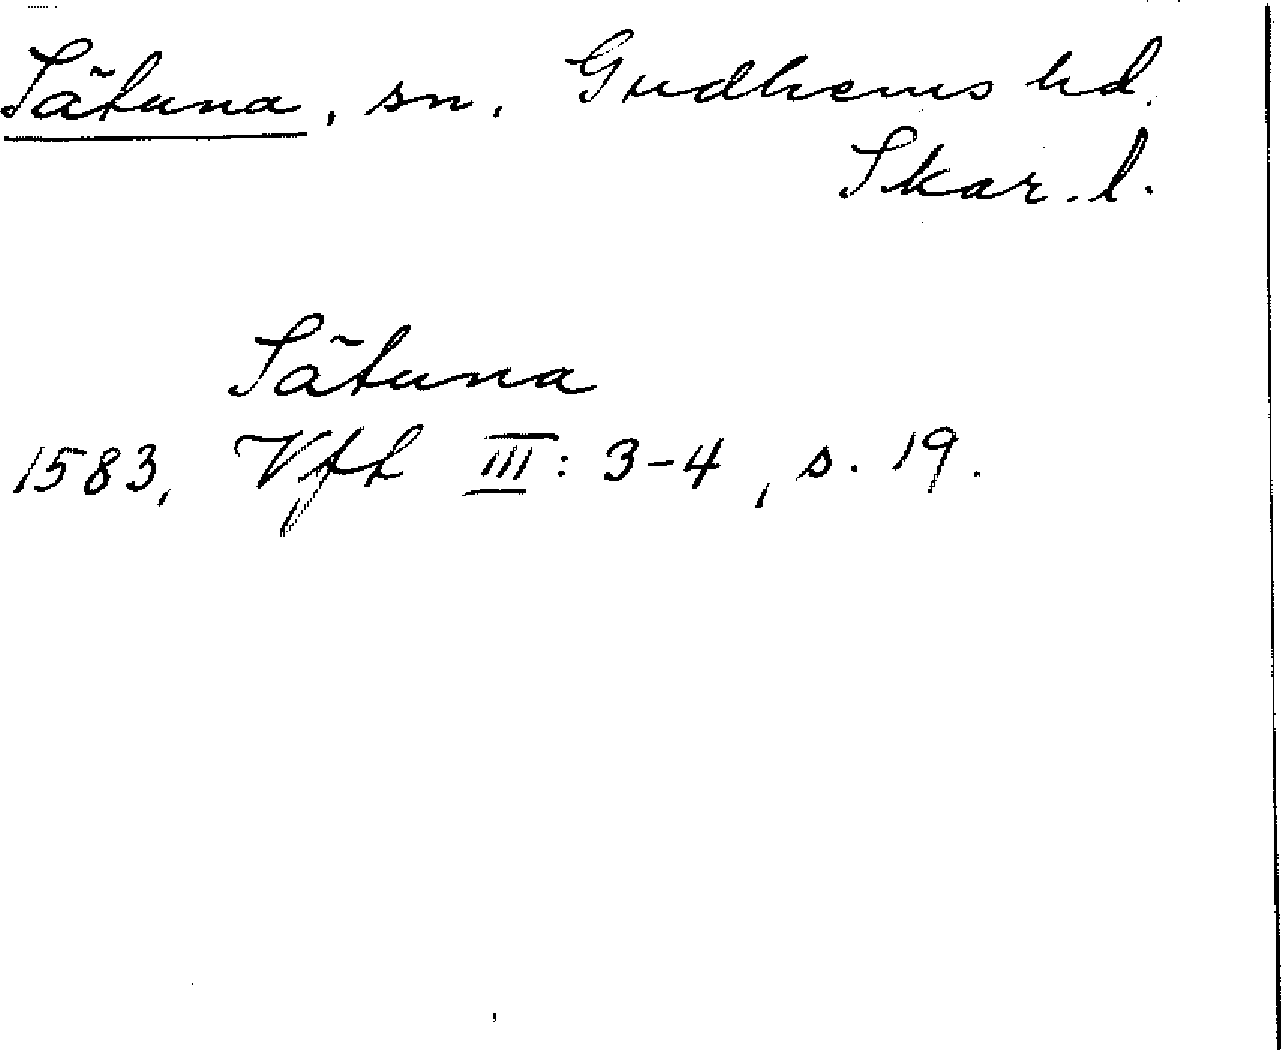 Sätuna, sn. Gudhems hd.
Skar. l.
Sätuna
1583, Vft III: 3-4, s. 19.